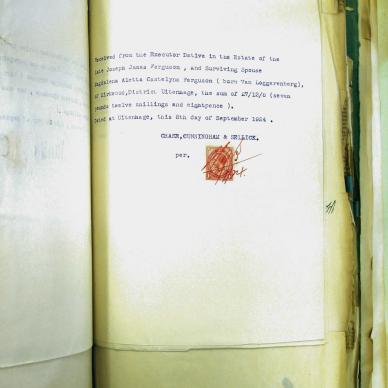 Received from the Executor Dative in the Estate of the
late Joseph James Ferguson , and Surviving Spouse
Magdalena Aletta Castelyns Ferguson ( born Van Loggerenberg),
of Kirkwood,District Uitenhage, the sum of £7/12/8 (seven
pounds twelve shillings and eightpence ).
Dated at Uitenhage, this 8th day of September 1924 .
CHASE,CUNNINGHAM & SELLICK.
per.